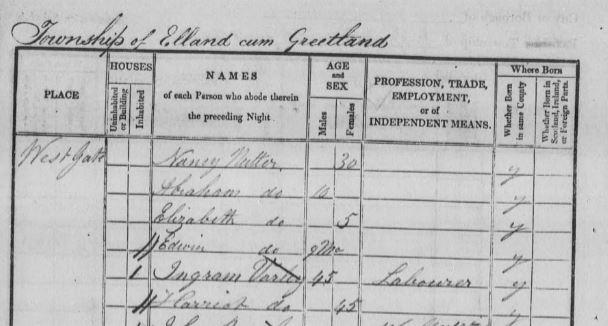 Township of Elland cum Greetland
PLACE
HOUSES
Uninhabited or Building
Inhabited
NAMES
of each Person who abode therein
the preceding Night.
AGE
and
SEX
Males
Females
PROFESSION, TRADE,
EMPLOYMENT,
or of
INDEPENDENT MEANS.
Where Born
Whether Born in same County
Whether Born in Scotland, Ireland, or Foreign Parts.
West Gate Nancy Nutter 30 y
Abraham do 10 y
Elizabeth do 5 y
// Edwin do 9 Mo y
1 Ingram Varley 45 Labourer y
// Harriot do 45 y